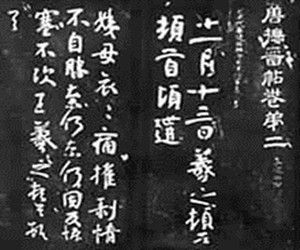 唐摹晉帖卷第二
十一月十三日羲之頓首
頓首頃遘
姨母哀〻痛摧剝情
不自勝奈何奈何因反慘
塞不次王羲之頓首頓
首